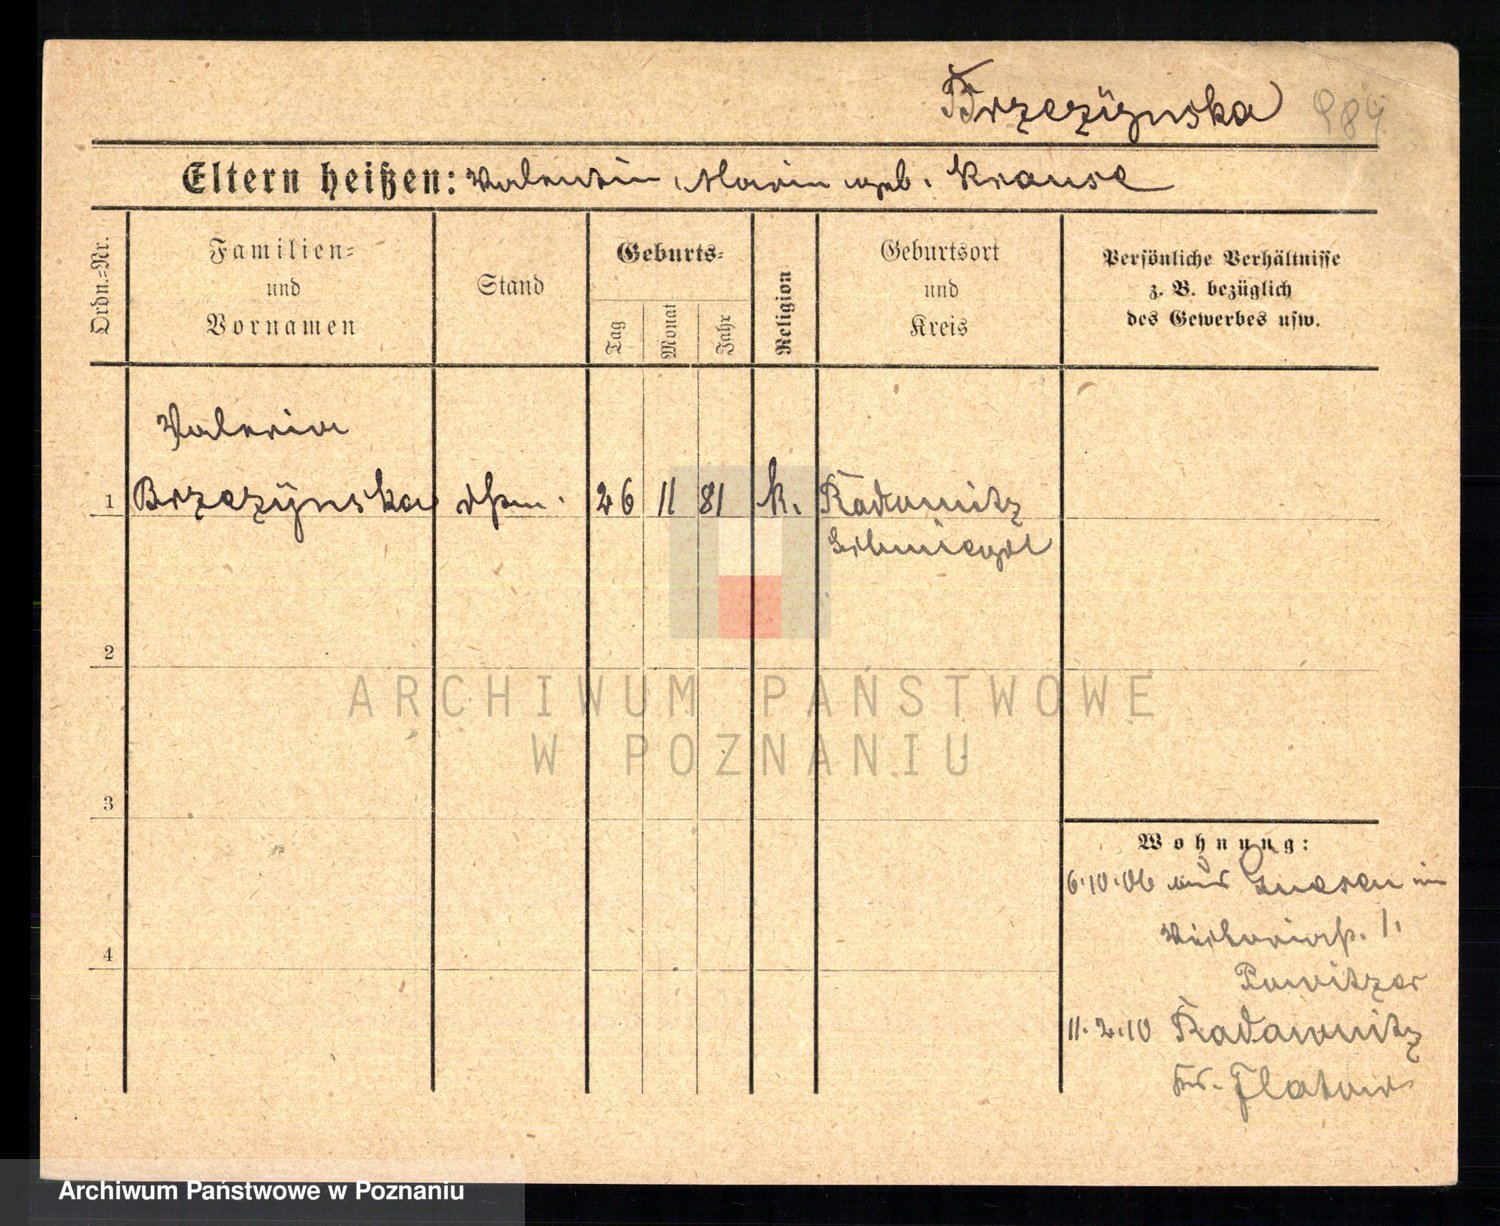 Brzezÿnska 984
Eltern heißen: Valentin, Marie geb. Krause
Ordn.-Nr.
Familien- und Vornamen
Stand
Geburts-
Tag
Monat
Jahr
Religion
Geburtsort und Kreis
Persönliche Verhältnisse
z. B. bezüglich
des Gewerbes usw.
Valeria
1 Brzezÿnska 26 11 81 k. Radawnitz
Schmiegel
2
3
4
Wohnung:
6.10.06 aus Gnesen in
Victoriastr. 1.
11.2.10 Radawnitz
Kr. Flatow
ARCHIWUM PAŃSTWOWE
W POZNANIU
Archiwum Państwowe w Poznaniu